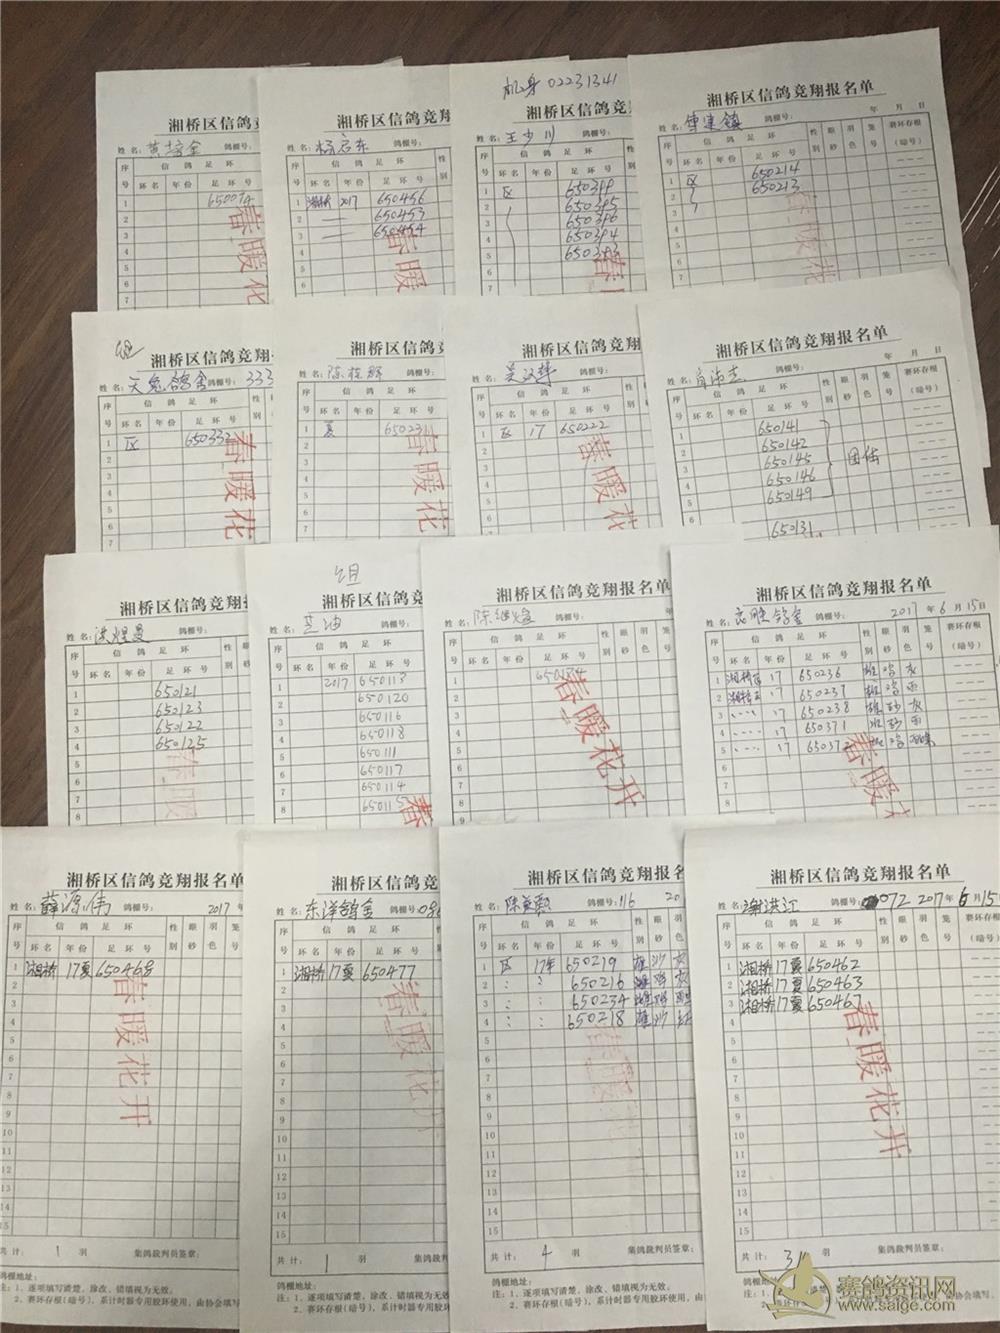 湘桥区信鸽竞
姓名: 鸽棚号:
序号 信鸽足环
环名 年份 足环号
1 650074
春暖花
湘桥区信鸽竞
姓名:杨启东 鸽棚号:
序号 信鸽足环 性
环名 年份 足环号 别
1 湘桥 2017 650456
2 650453
3 650454
春暖
机身 02231341
湘桥区信鸽竞
姓名:王少川 鸽棚号:
序号 信鸽足环
环名 年份 足环号
1 区 650399
2 650395
3 650396
4 650394
5 650393
春
湘桥区信鸽竞翔报名单
年 月 日
姓名: 鸽棚号:
序号 信鸽足环 性别 眼砂 羽色 笼号 赛环存根(暗号)
环名 年份 足环号
1 区 650214
2 650213
春暖花
湘桥区信鸽竞翔
姓名:天兔鸽舍 鸽棚号:333
序号 信鸽足环 性别
环名 年份 足环号
1 区 650332
春暖花
湘桥区信鸽竞
姓名: 鸽棚号:
序号 信鸽足环
环名 年份 足环号
1 夏 65023
春暖花
湘桥区信鸽竞翔
姓名:吴汉 鸽棚号:
序号 信鸽足环 性别
环名 年份 足环号
1 区 17 650222
春暖花
湘桥区信鸽竞翔报名单
年 月 日
姓名: 鸽棚号:
序号 信鸽足环 性别 眼砂 羽色 笼号 赛环存根(暗号)
环名 年份 足环号
1 650141
2 650142
3 650145 团体
4 650146
5 650149
650131
湘桥区信鸽竞翔报
姓名:洪煌曼 鸽棚号:
序号 信鸽足环 性别 眼砂 羽色
环名 年份 足环号
1 650121
2 650123
3 650122
4 650125
春暖
组
湘桥区信鸽竞翔报
姓名: 鸽棚号:
序号 信鸽足环 性别 眼砂
环名 年份 足环号
1 2017 650113
2 650120
3 650116
4 650118
5 650111
6 650117
7 650114
8 650115
春
湘桥区信鸽竞翔报名单
姓名:陈继煌 鸽棚号:
序号 信鸽足环 性别 眼砂 羽色 笼号
环名 年份 足环号
1 650184
春暖花开
湘桥区信鸽竞翔报名单
姓名:志胜鸽舍 鸽棚号: 2017年6月15日
序号 信鸽足环 性别 眼砂 羽色 笼号 赛环存根(暗号)
环名 年份 足环号
1 湘桥区 17 650236 雄 鸡 灰
2 湘桥区 17 650237 雄 鸡 雨
3 17 650238 雄 砂 灰
4 17 650371 砂 雨
5 17 65037 鸡
春暖花
湘桥区信鸽竞翔报名单
姓名:薛源伟 鸽棚号: 2017年
序号 信鸽足环 性别 眼砂 羽色 笼号
环名 年份 足环号
1 湘桥 17夏 650468
春暖花开
共计: 1 羽 集鸽裁判员签章:
鸽棚地址:
注:1、逐项填写清楚,涂改、错填视为无效。
2、赛环存根(暗号),系计时器专用胶环使用,由协会填写
湘桥区信鸽竞
姓名:东洋鸽舍 鸽棚号:086
序号 信鸽足环
环名 年份 足环号
1 湘桥 17夏 650477
春暖花开
共计: 1 羽
鸽棚地址:
注:1、逐项填写清楚,涂改、错填视为无效。
2、赛环存根(暗号),系计时器专用胶环使
湘桥区信鸽竞翔报名
姓名:陈 鸽棚号: 116 20
序号 信鸽足环 性别 眼砂 羽色
环名 年份 足环号
1 区 17年 650219 雄 沙 灰
2 650216
3 650234
4 650218 雄 沙 红
春暖花
共计: 4 羽 集鸽裁判员签章:
鸽棚地址:
注:1、逐项填写清楚,涂改、错填视为无效。
2、赛环存根(暗号),系计时器专用胶环使用,由
湘桥区信鸽竞翔报名单
姓名:谢洪江 072 2017年6月15
序号 信鸽足环 性别 眼砂 羽色 笼号 赛环存根(暗号)
环名 年份 足环号
1 湘桥 17夏 650462
2 湘桥 17夏 650463
3 湘桥 17夏 650467
春暖花开
共计: 3 羽 集鸽裁判员签章:
鸽棚地址:
注:1、逐项填写清楚,涂改、错填视为无效。
2、赛环存根(暗号),系计时
赛鸽资讯网
www.saige.com